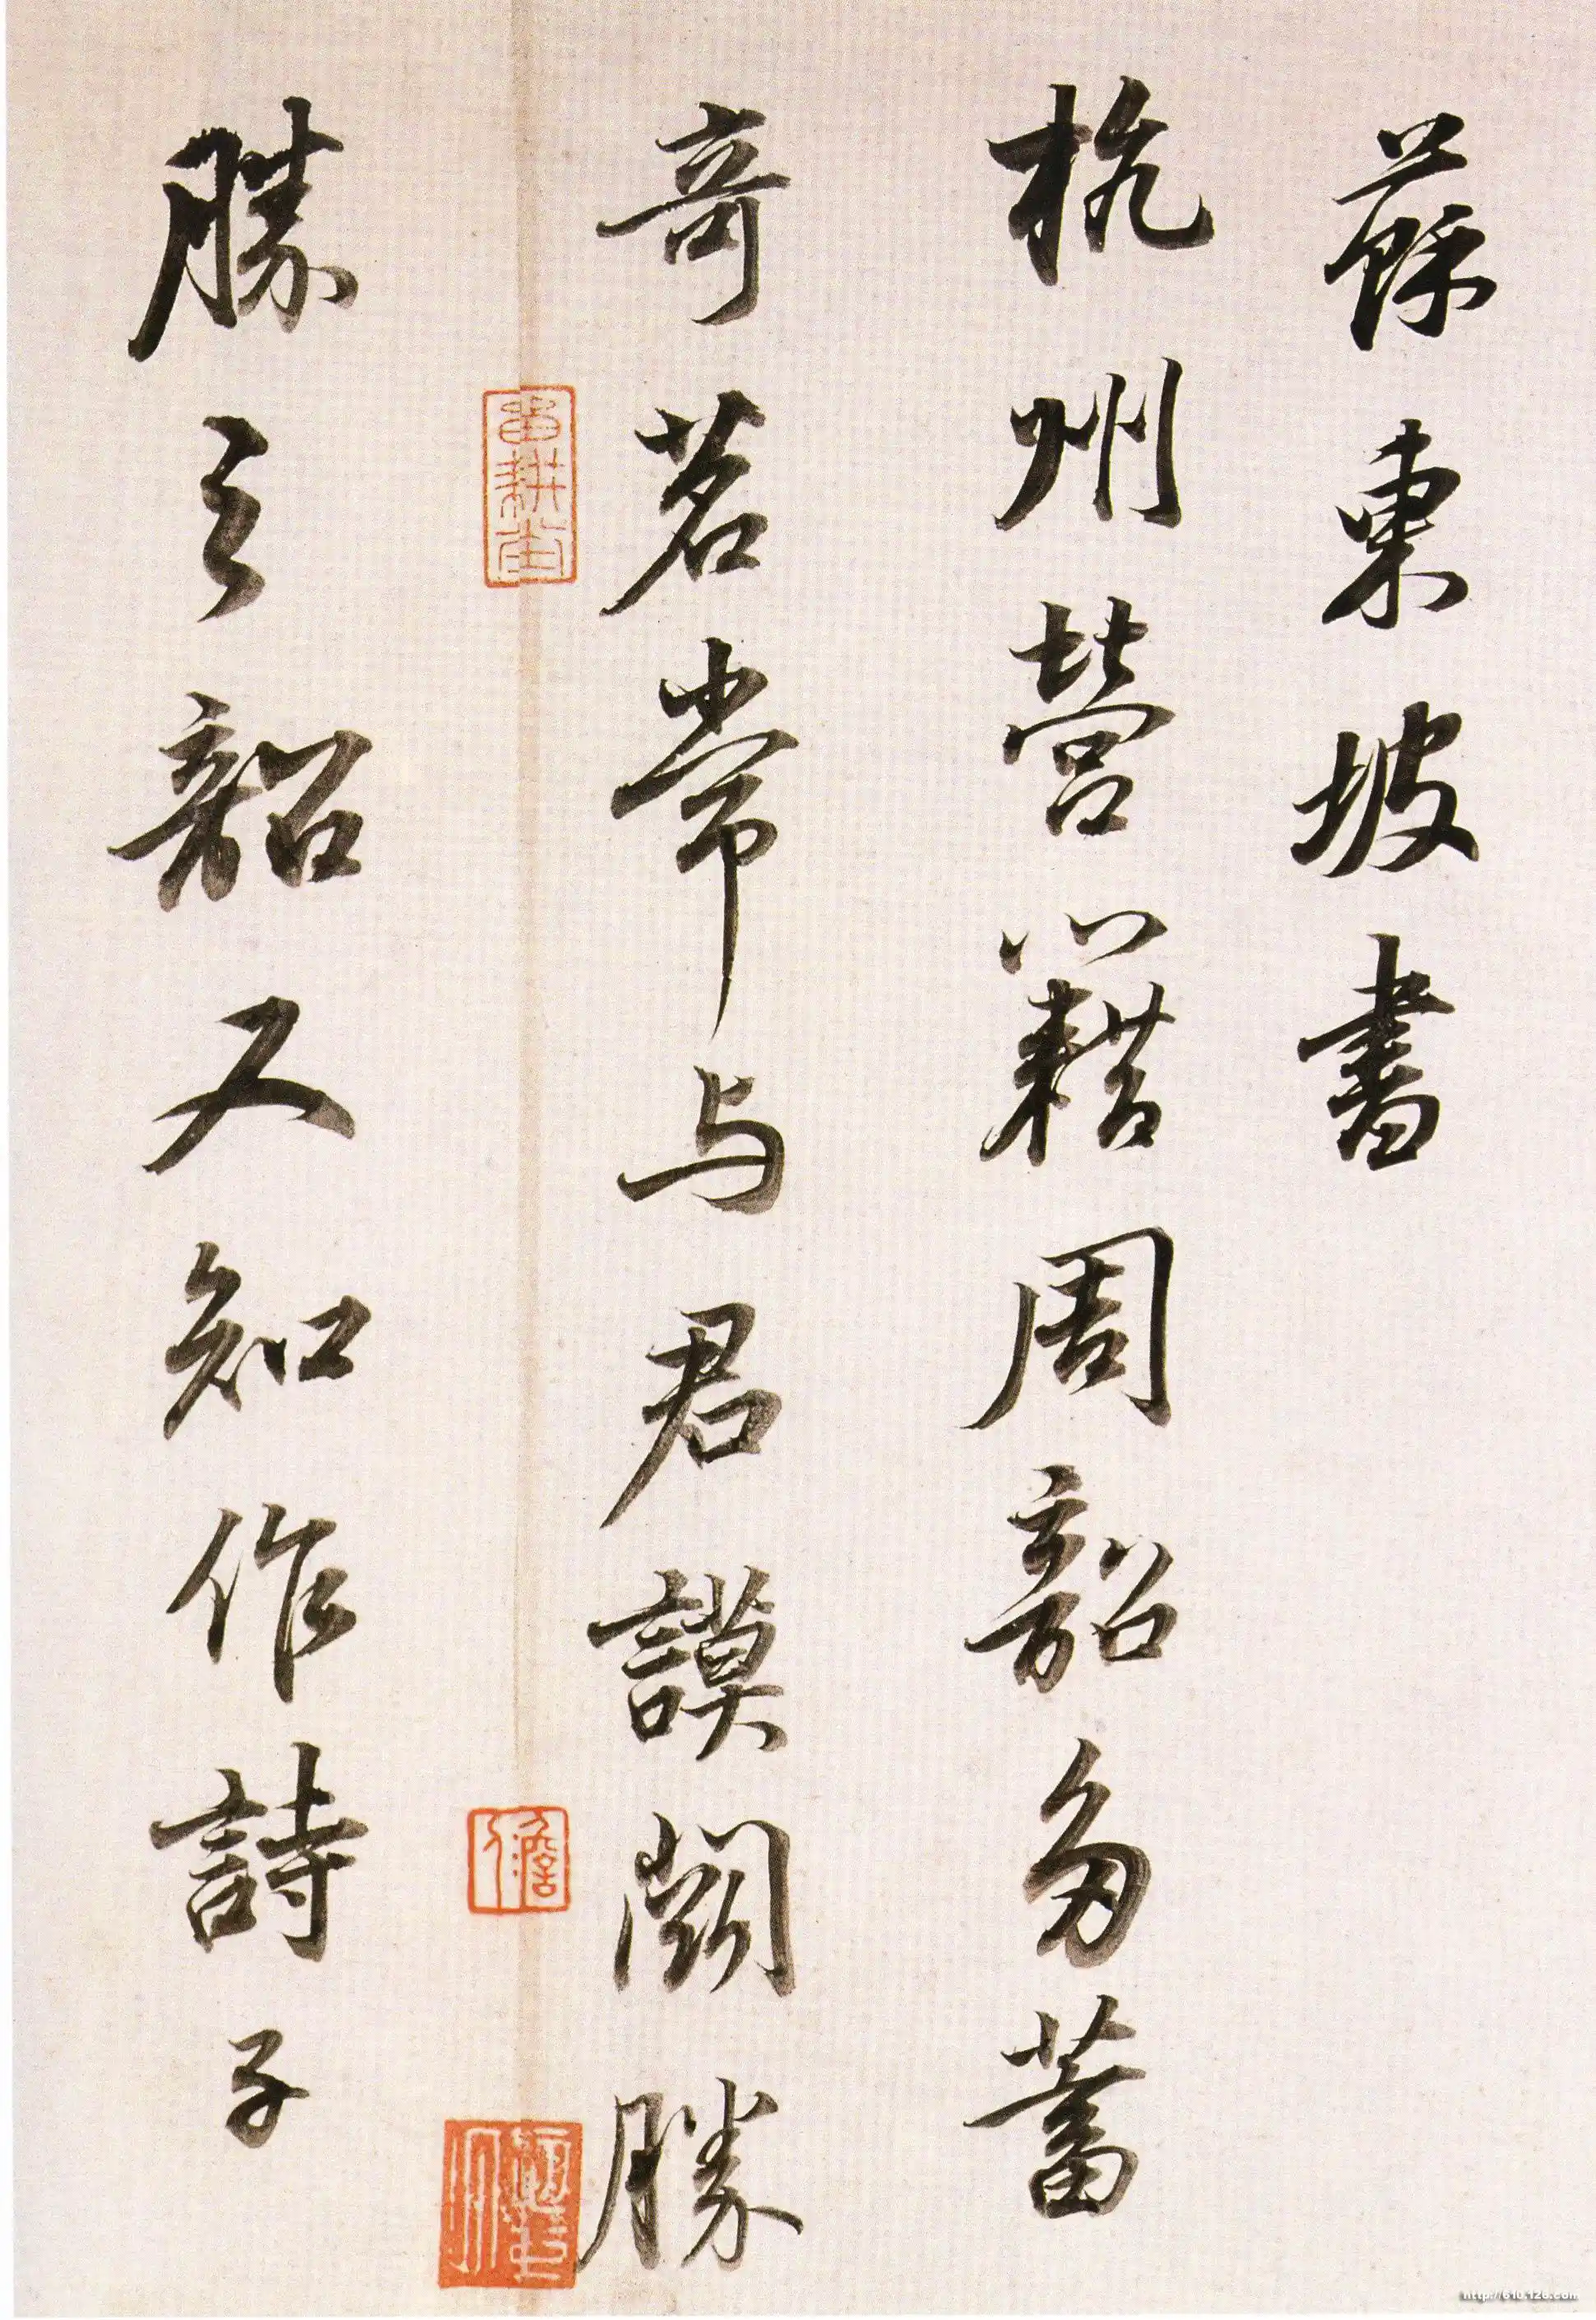 蘇東坡書
杭州營籍周韶多蓄
奇茗常与君謨闘勝
勝之韶又知作詩子
http://610.126.com